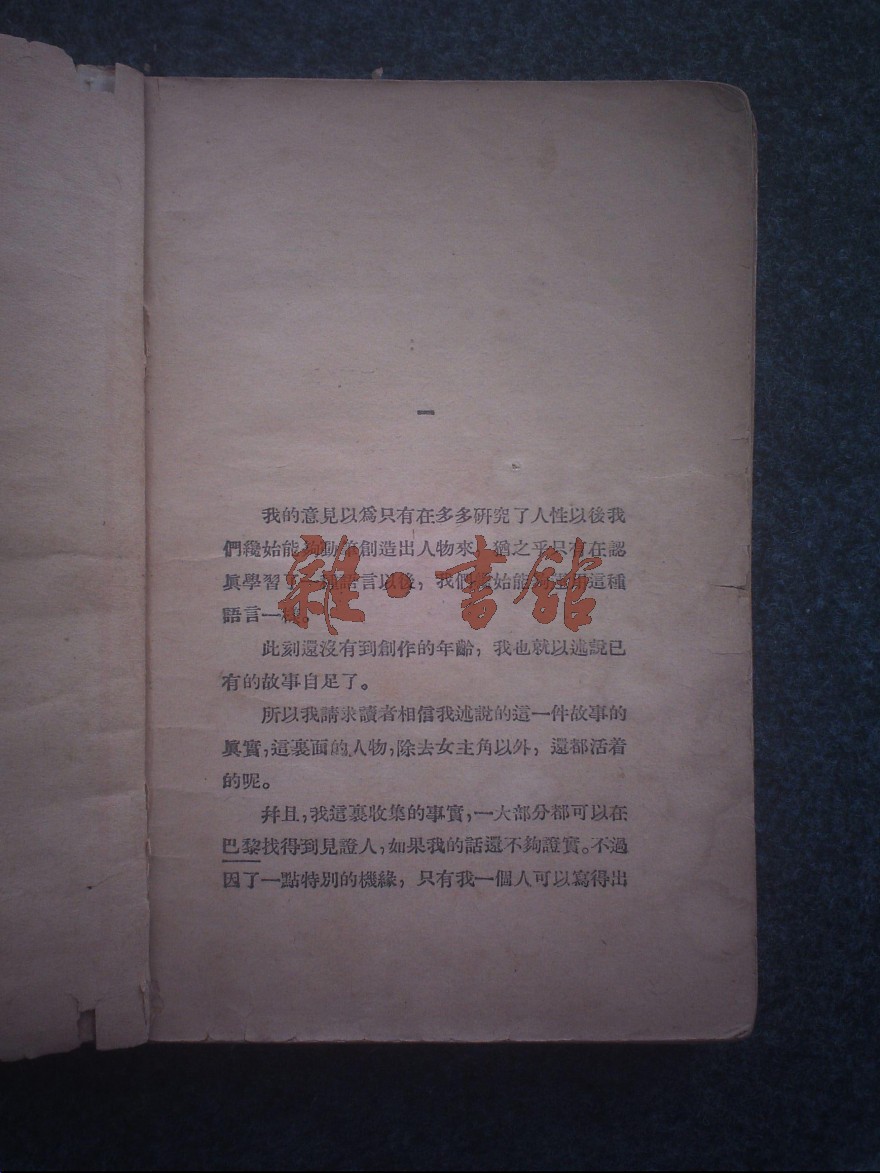 一
我的意見以爲只有在多多硏究了人性以後我
們纔始能夠動筆創造出人物來，猶之乎只有在認
眞學習了一種語言以後，我們纔始能夠運用這種
語言一樣。
雜·書館
此刻還沒有到創作的年齡，我也就以述說已
有的故事自足了。
所以我請求讀者相信我述說的這一件故事的
眞實，這裏面的人物，除去女主角以外，還都活着
的呢。
幷且，我這裏收集的事實，一大部分都可以在
巴黎找得到見證人，如果我的話還不夠證實。不過
因了一點特別的機緣，只有我一個人可以寫得出